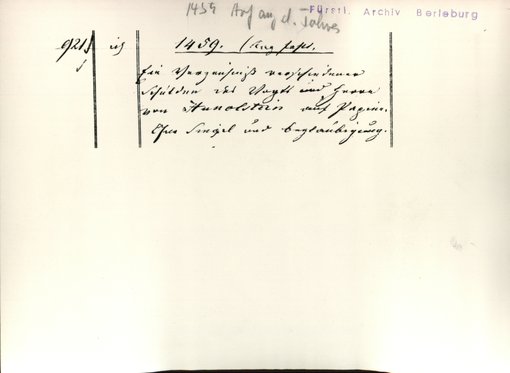 1459 Anfang d. Jahres
Fürstl. Archiv Berleburg
921 ich 1459. (Tag fehlt.
Ein Verzeichniß verschiedener
Schulden des Vogts und Herrn
von Hunolstein auf Papier.
Ohne Siegel und Beglaubigung.